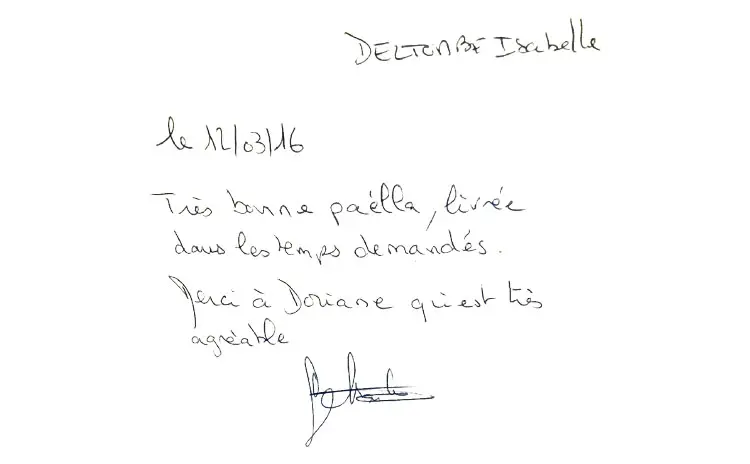 DELTOMBE Isabelle
le 12/03/16
Très bonne paëlla, livrée
dans les temps demandés.
Merci à Doriane qui est très
agréable